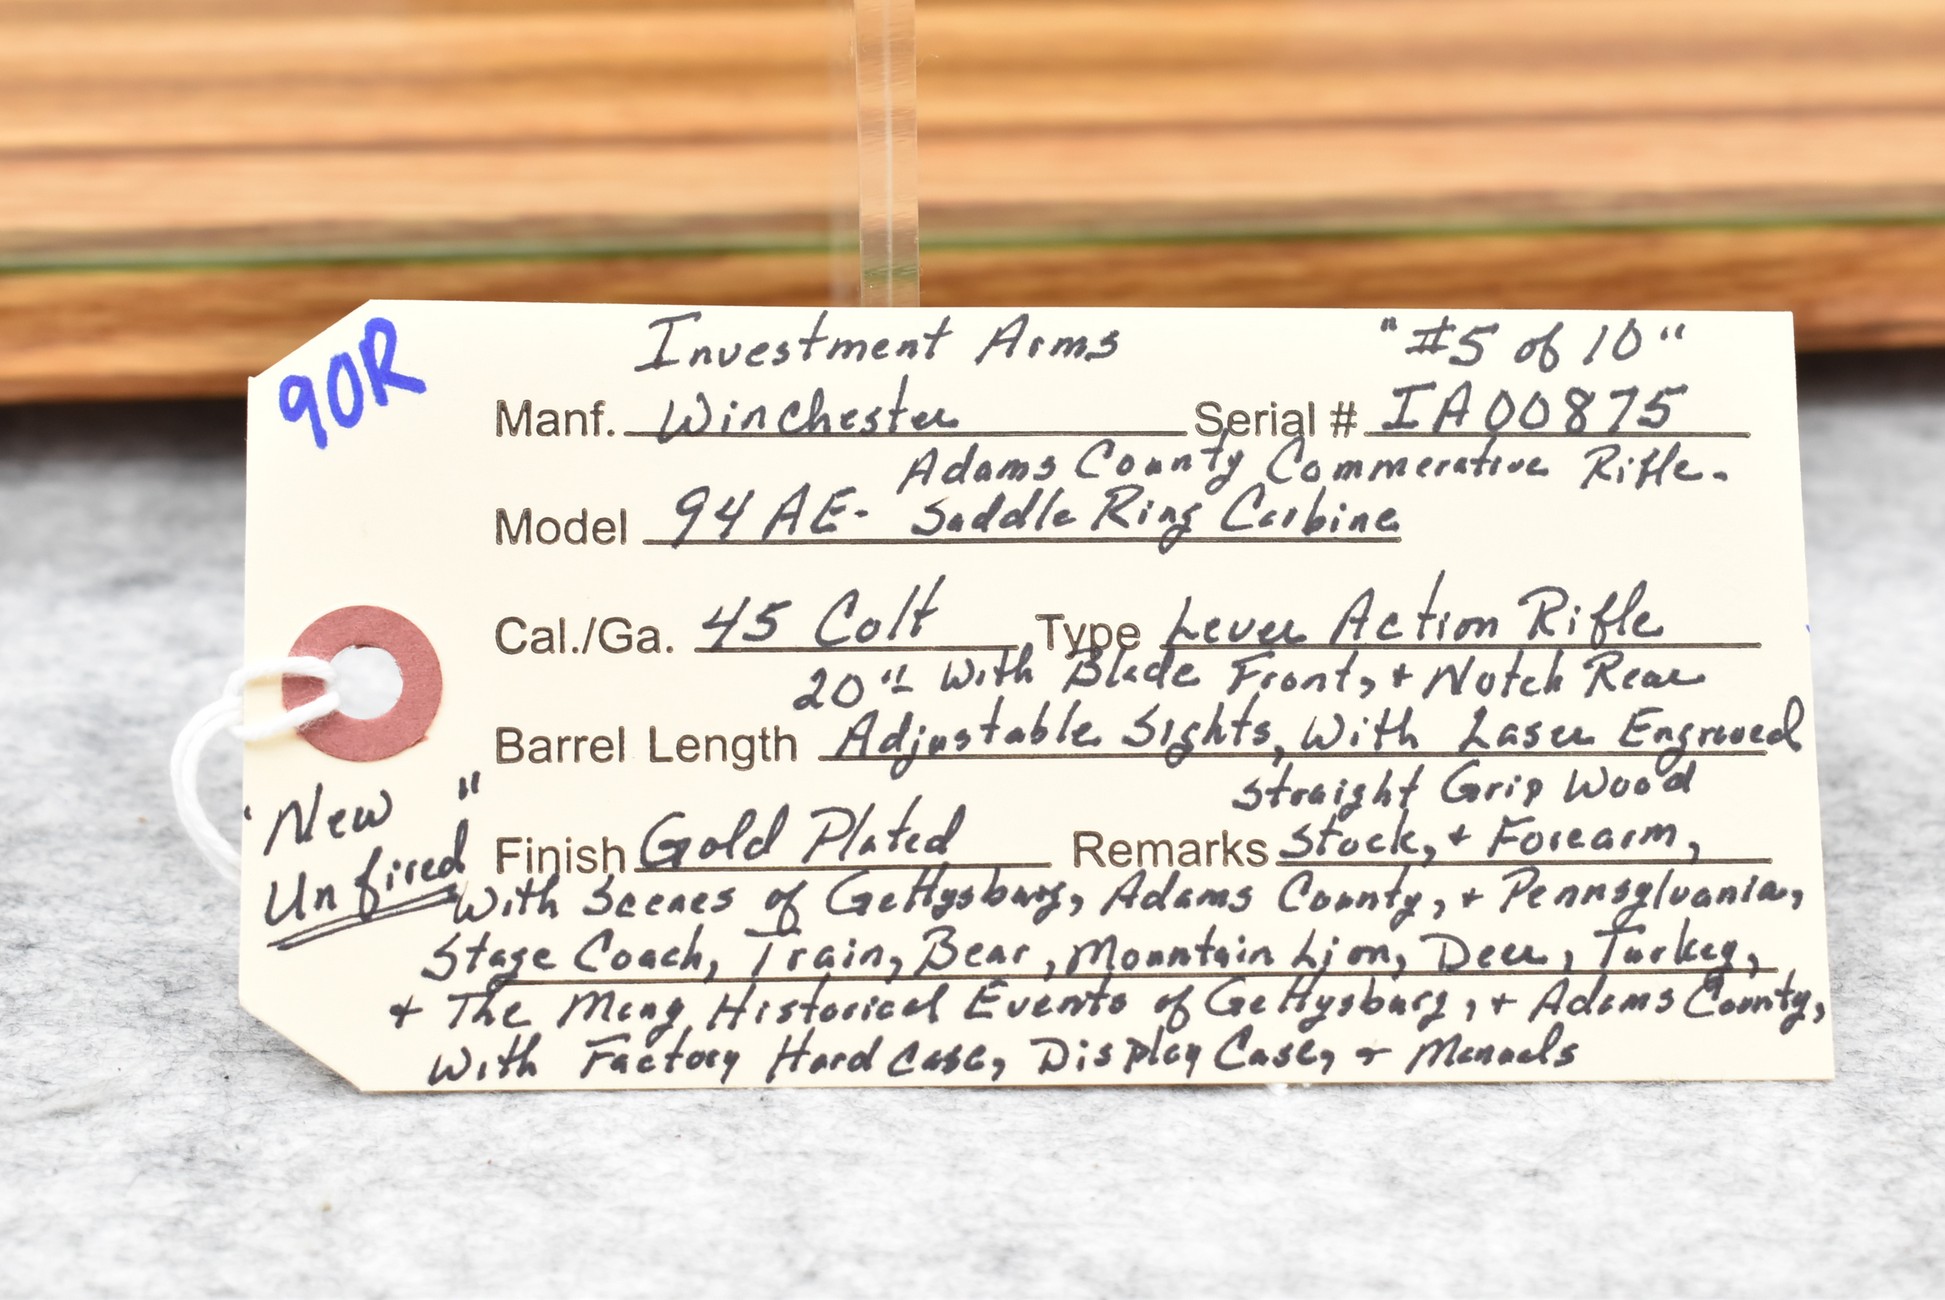 90R
Investment Arms "#5 of 10"
Manf. Winchester Serial # IA00875
Adams County Commerative Rifle.
Model 94 AE- Saddle Ring Carbine
Cal./Ga. 45 Colt Type Lever Action Rifle
20" With Blade Front, + Notch Rear
Barrel Length Adjustable Sights, With Laser Engraved
"New" Straight Grip Wood
Unfired Finish Gold Plated Remarks Stock, + Forearm,
With Scenes of Gettysburg, Adams County, + Pennsylvania,
Stage Coach, Train, Bear, Mountain Lion, Deer, Turkey,
+ The Many Historical Events of Gettysburg, + Adams County,
With Factory Hard Case, Display Case, + Manuals